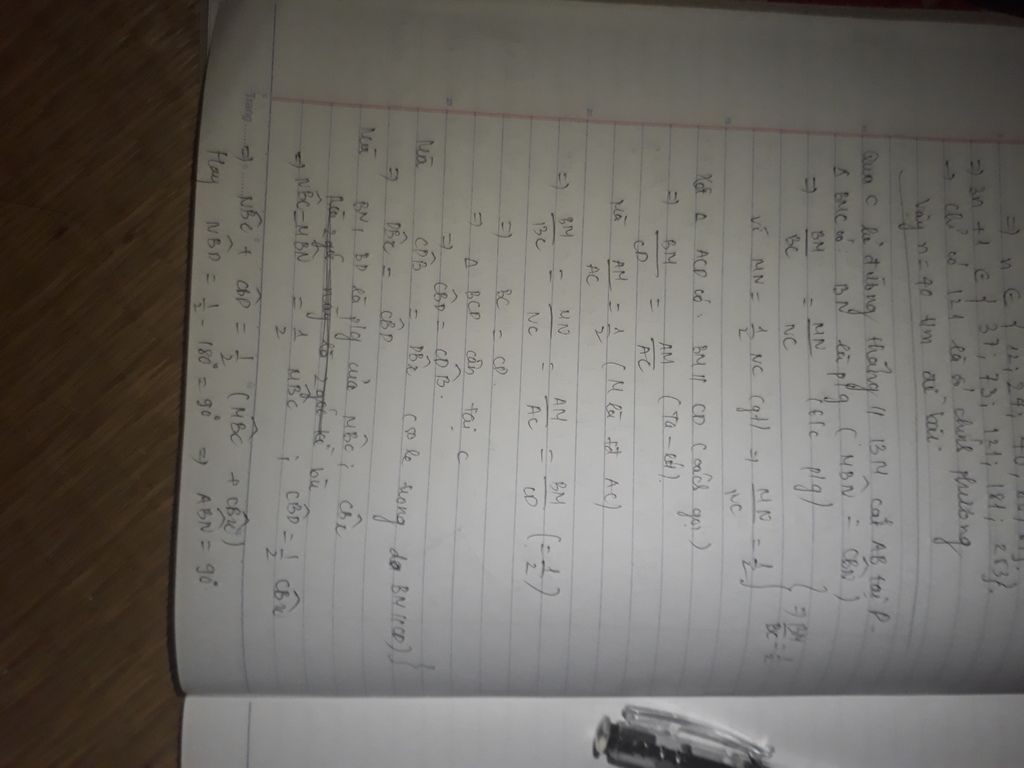 ⇒ n ∈ { 12; 24; 40;
⇒ 3n + 1 ∈ { 37; 73; 121; 181; 253}.
⇒ chỉ có 121 là số chính phương
Vậy n = 40 t/m đề bài.
Qua C kẻ đường thẳng // BN cắt AB tại D.
Δ BMC có: BN là p/g ( MBN = CBN )
⇒ BM/BC = MN/NC (t/c p/g)
Vì MN = 1/2 NC (gt) ⇒ MN/NC = 1/2 } ⇒ BM/BC = 1/2
Xét Δ ACD có: BM // CD (cách gọi)
⇒ BM/CD = AM/AC (Ta-lét).
Mà AM/AC = 1/2 ( M là tđ AC)
⇒ BM/BC = MN/NC = AM/AC = BM/CD ( = 1/2 )
⇒ BC = CD.
⇒ Δ BCD cân tại C
⇒ CBD = CDB.
Mà CDB = DBx (so le trong do BM // CD) }
⇒ DBx = CBD
Mà BN, BD là p/g của MBC; CBx
⇒ NBC = MBN = 1/2 MBC ; CBD = 1/2 CBx
⇒ NBC + CBD = 1/2 (MBC + CBx)
Hay NBD = 1/2 . 180° = 90° ⇒ ABN = 90°